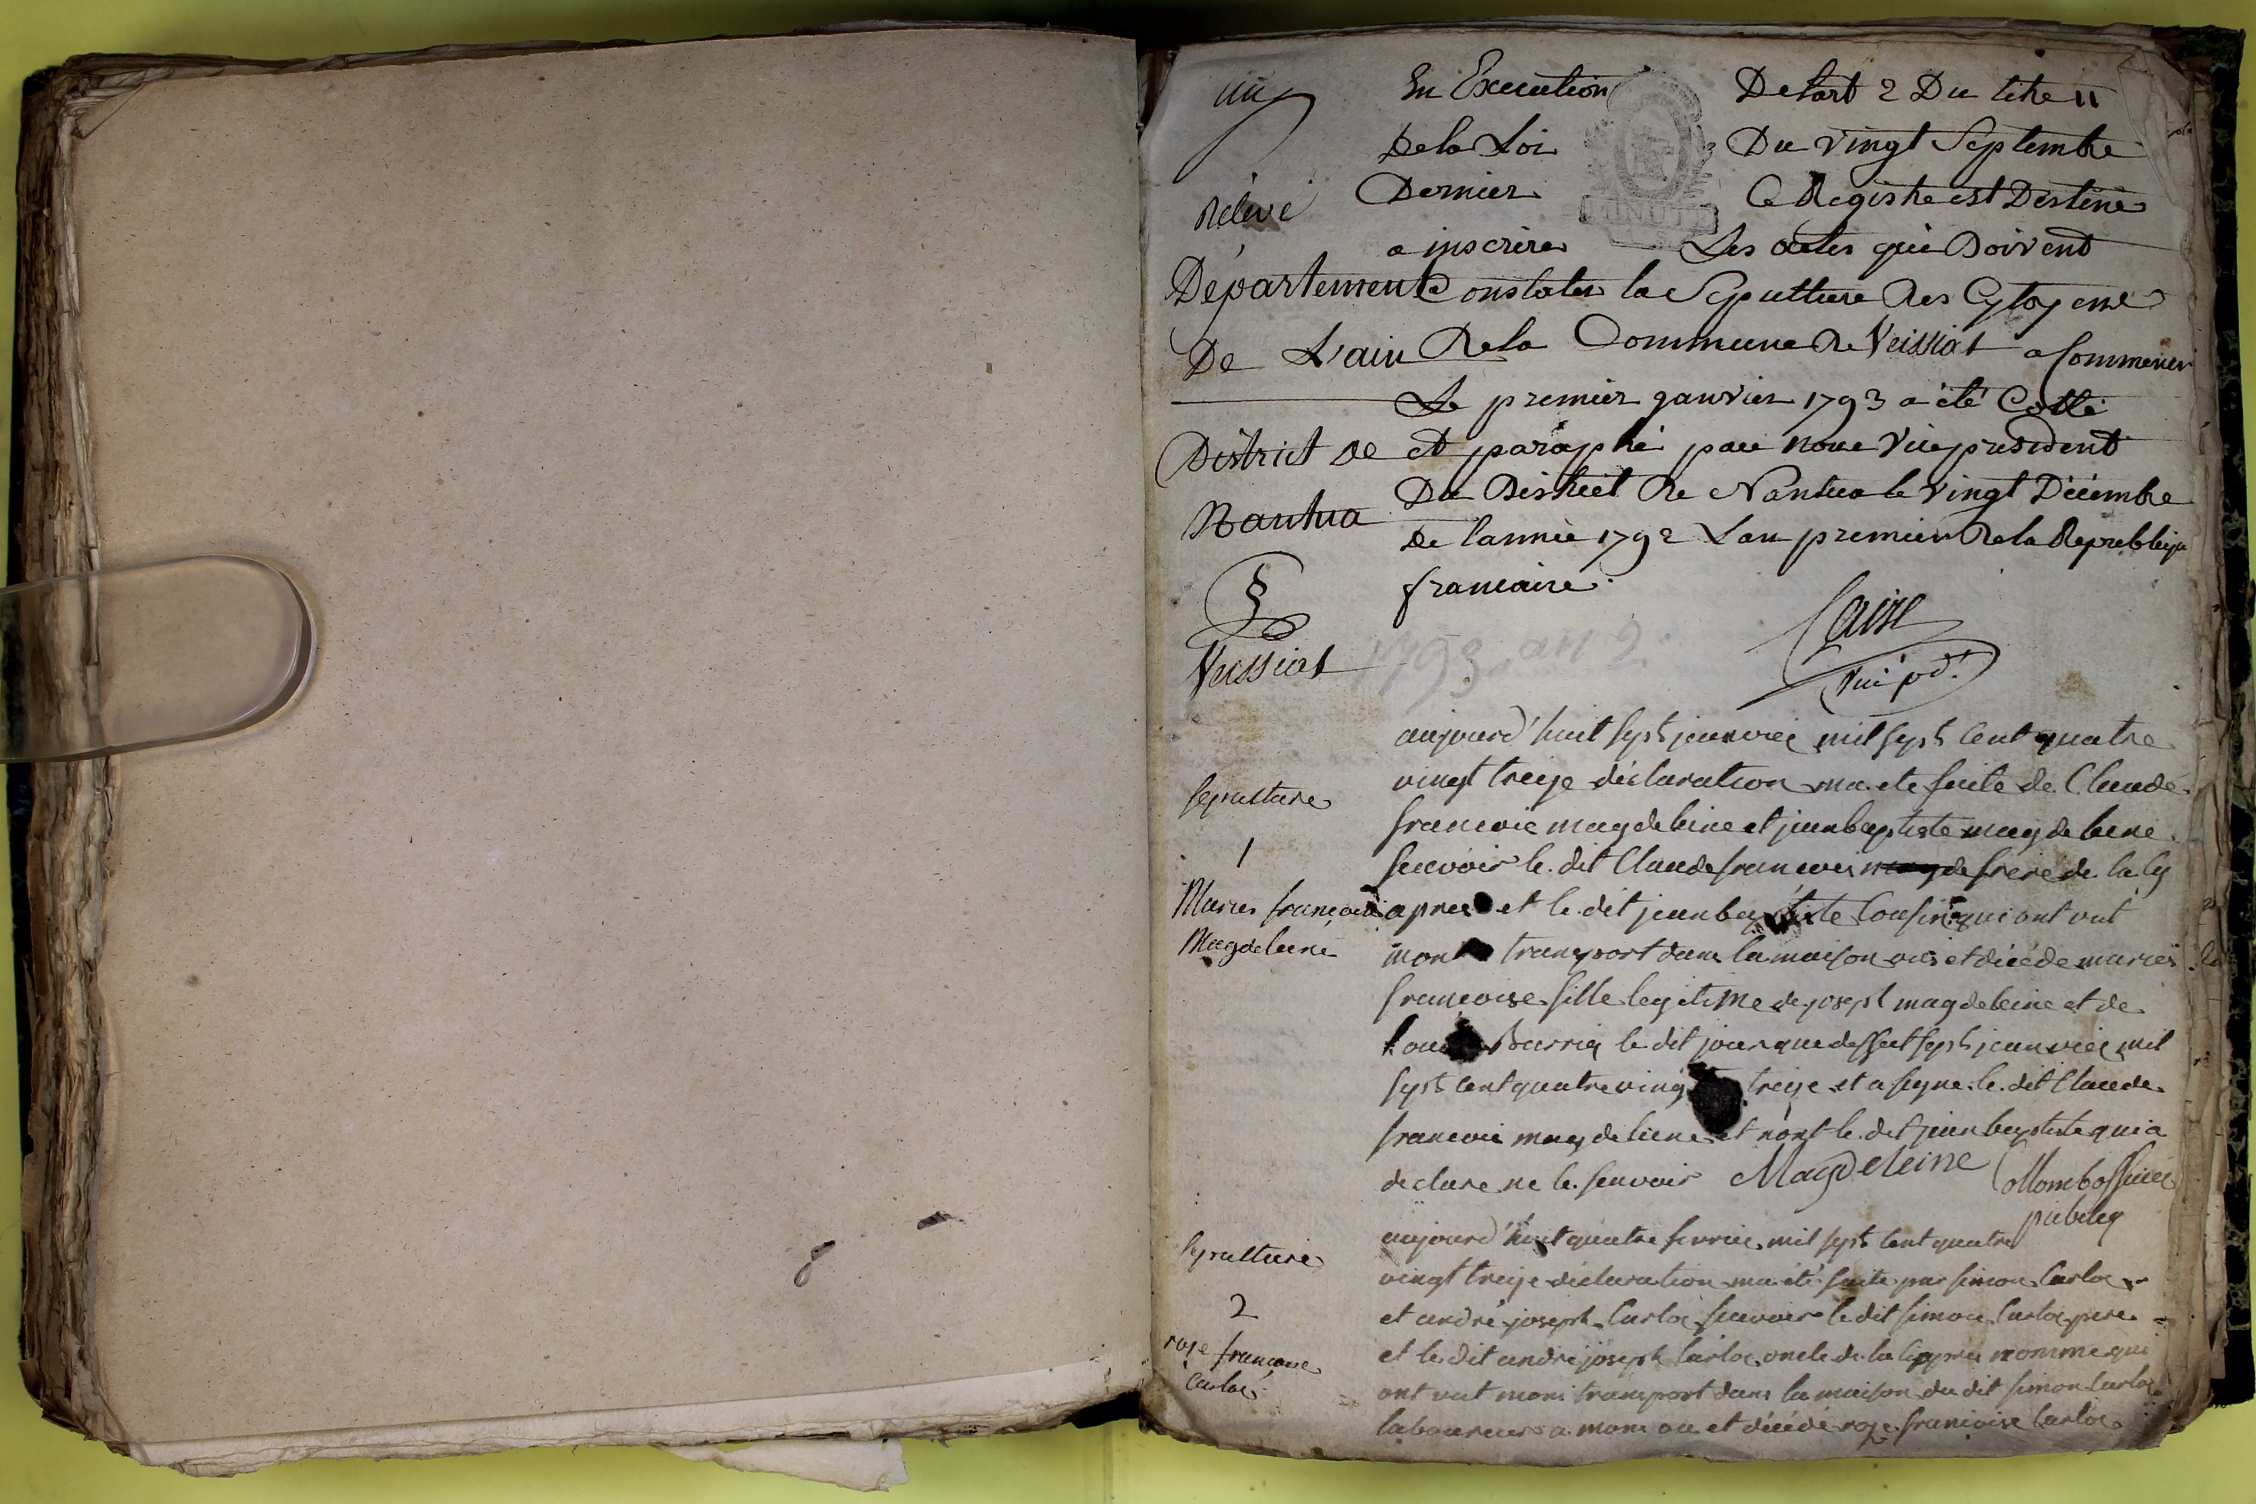 un
Relevé
Département
De L'ain
District de
Nantua
Veissiat
En Execution De l'art 2 Du titre 11
De la Loi Du vingt Septembre
Dernier Ce Registre est Destiné
a inscrire Les actes qui Doivent
Constater la Sepulture Des Cytoyens
De la Commune De Veissiat a Commencer
Le premier janvier 1793 a été Cotté
et paraphé par nous Vice president
Du District De Nantua le vingt Décembre
De l'année 1792 L'an premier De la Republique
francaise.
MINUTE
1793 an 2
vice pdt
Sepulture
1
Maries françoise
Magdeleine
aujourd'huit sept janvier mil sept cent quatre
vingt treize déclaration ma ete faite de Claude
francois magdeleine et jean baptiste magdeleine
scavoir le dit Claude francois frere de la cy
apres et le dit jean baptiste Cousin qui ont vut
mon transport dans la maison ou et décéde maries
francoise fille legitime de joseph magdeleine et de
le dit jour que dessut sept janvier mil
sept cent quatre vingt treize et a signe le dit Claude
francois magdeleine et nont le dit jean baptiste qui a
declare ne le scavoir Magdeleine Collomb officier
publicq
Sepulture
2
roze francoise
Carloz
aujourd'huit quatre fevrier mil sept cent quatre
vingt treize déclaration ma été faite par simon Carloz
et andré joseph Carloz scavoir le dit simon Carloz pere
et le dit andré joseph Carloz oncle de la cy apres nomme qui
ont vut mon transport dans la maison du dit simon Carloz
laboureur a mons ou et décédé roze francoise Carloz
8